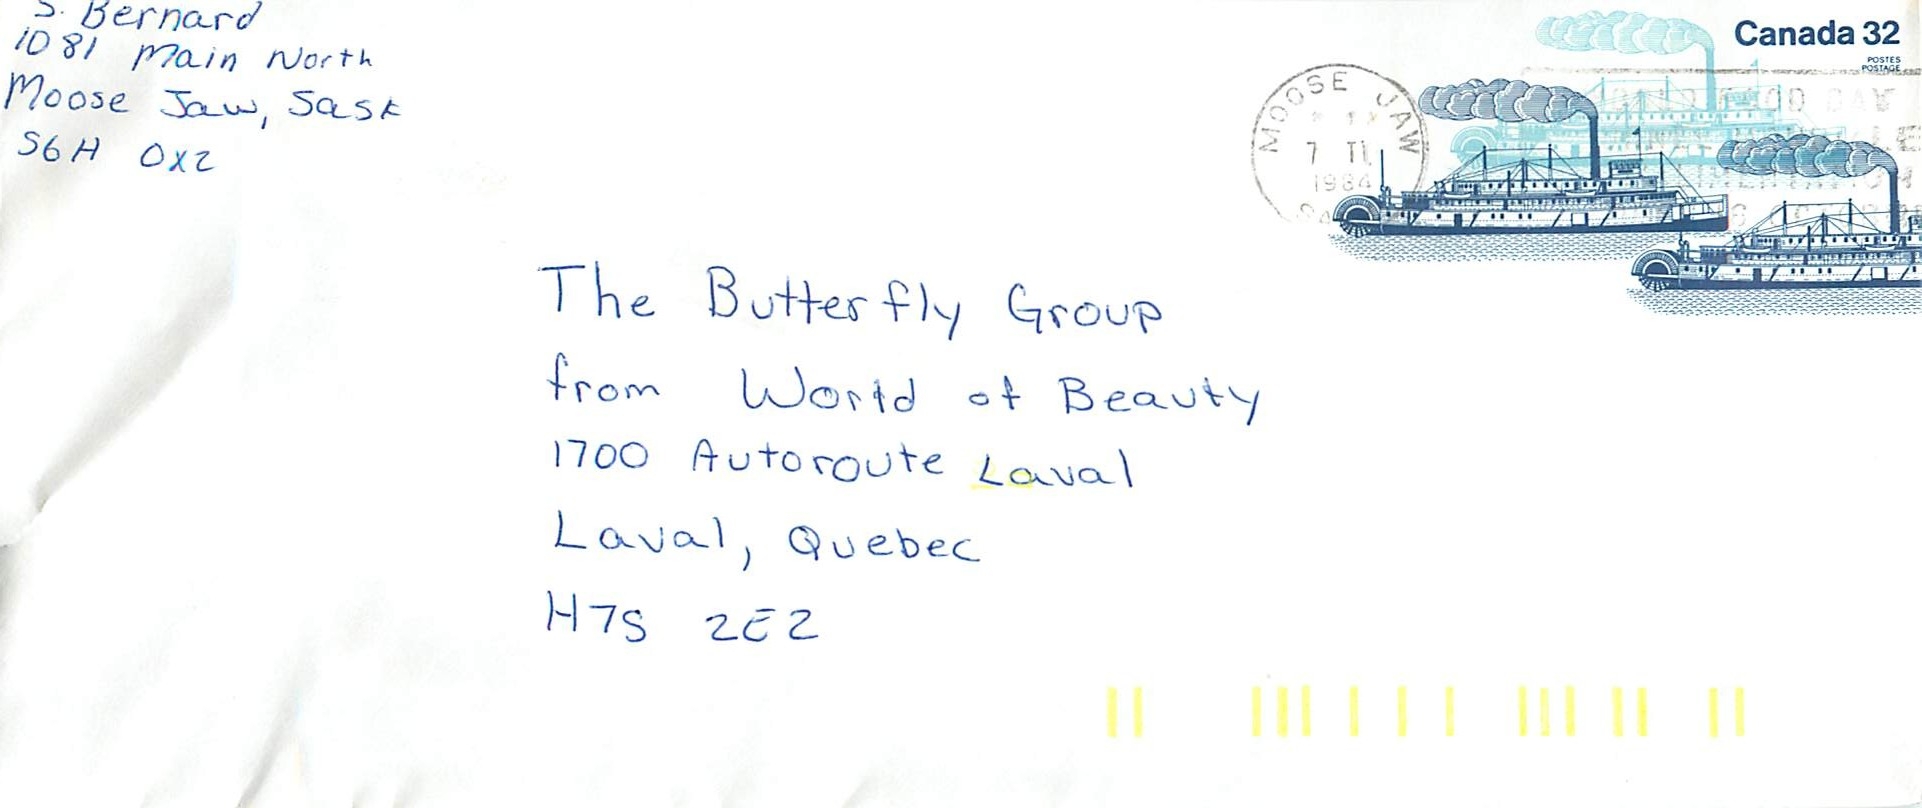 S. Bernard
1081 Main North
Moose Jaw, Sask
S6H 0X2
Canada 32
POSTES
POSTAGE
MOOSE JAW
1984
The Butterfly Group
from World of Beauty
1700 Autoroute Laval
Laval, Quebec
H7S 2E2